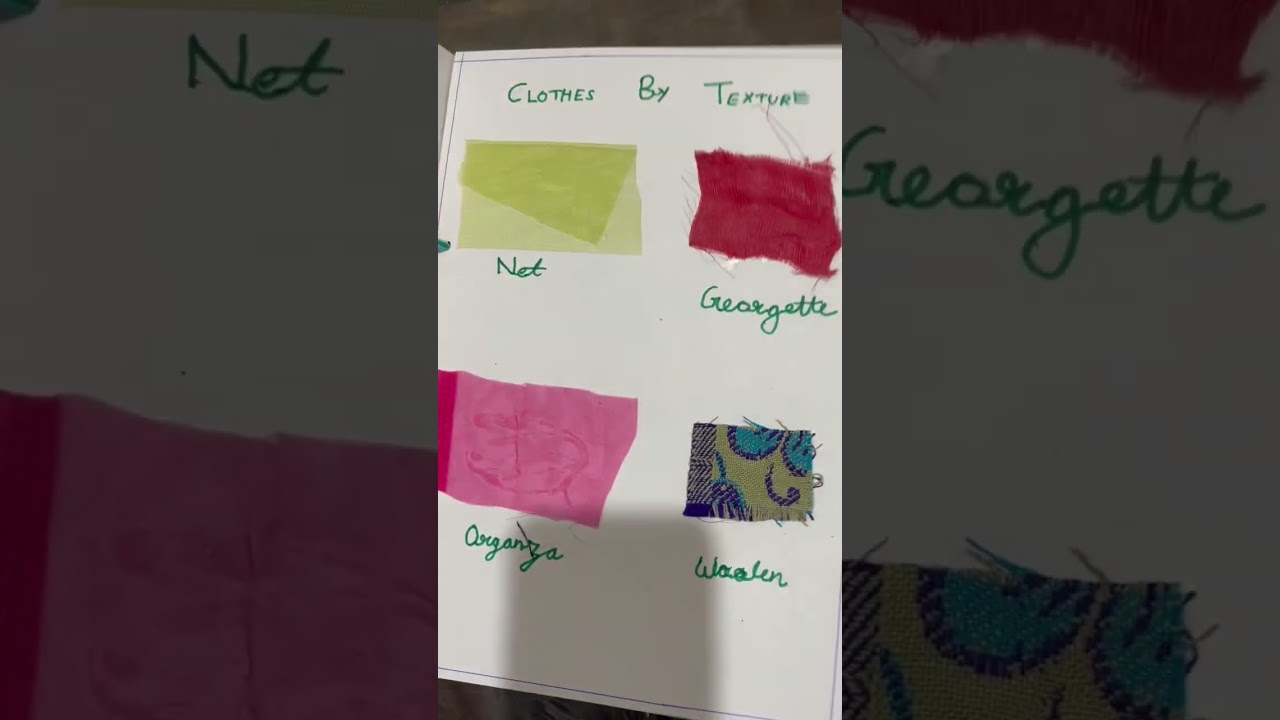 CLOTHES BY TEXTURE
Net
Georgette
Organza
Woolen
Net
Georgette